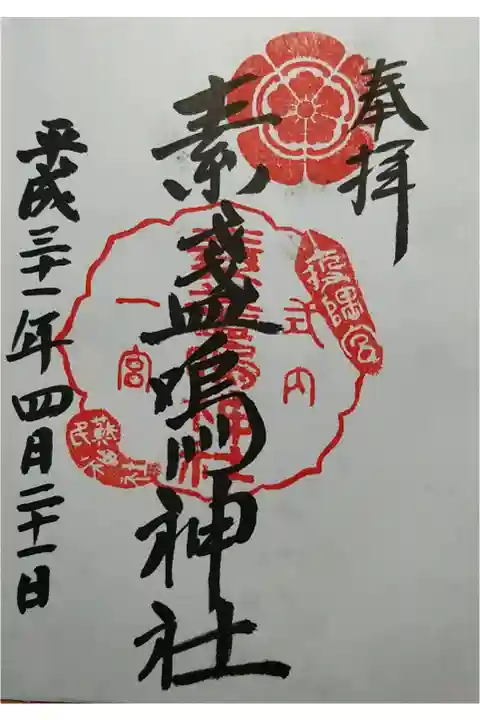 奉拝
素盞嗚神社
式内
一宮
蘇民
平成三十一年四月二十一日